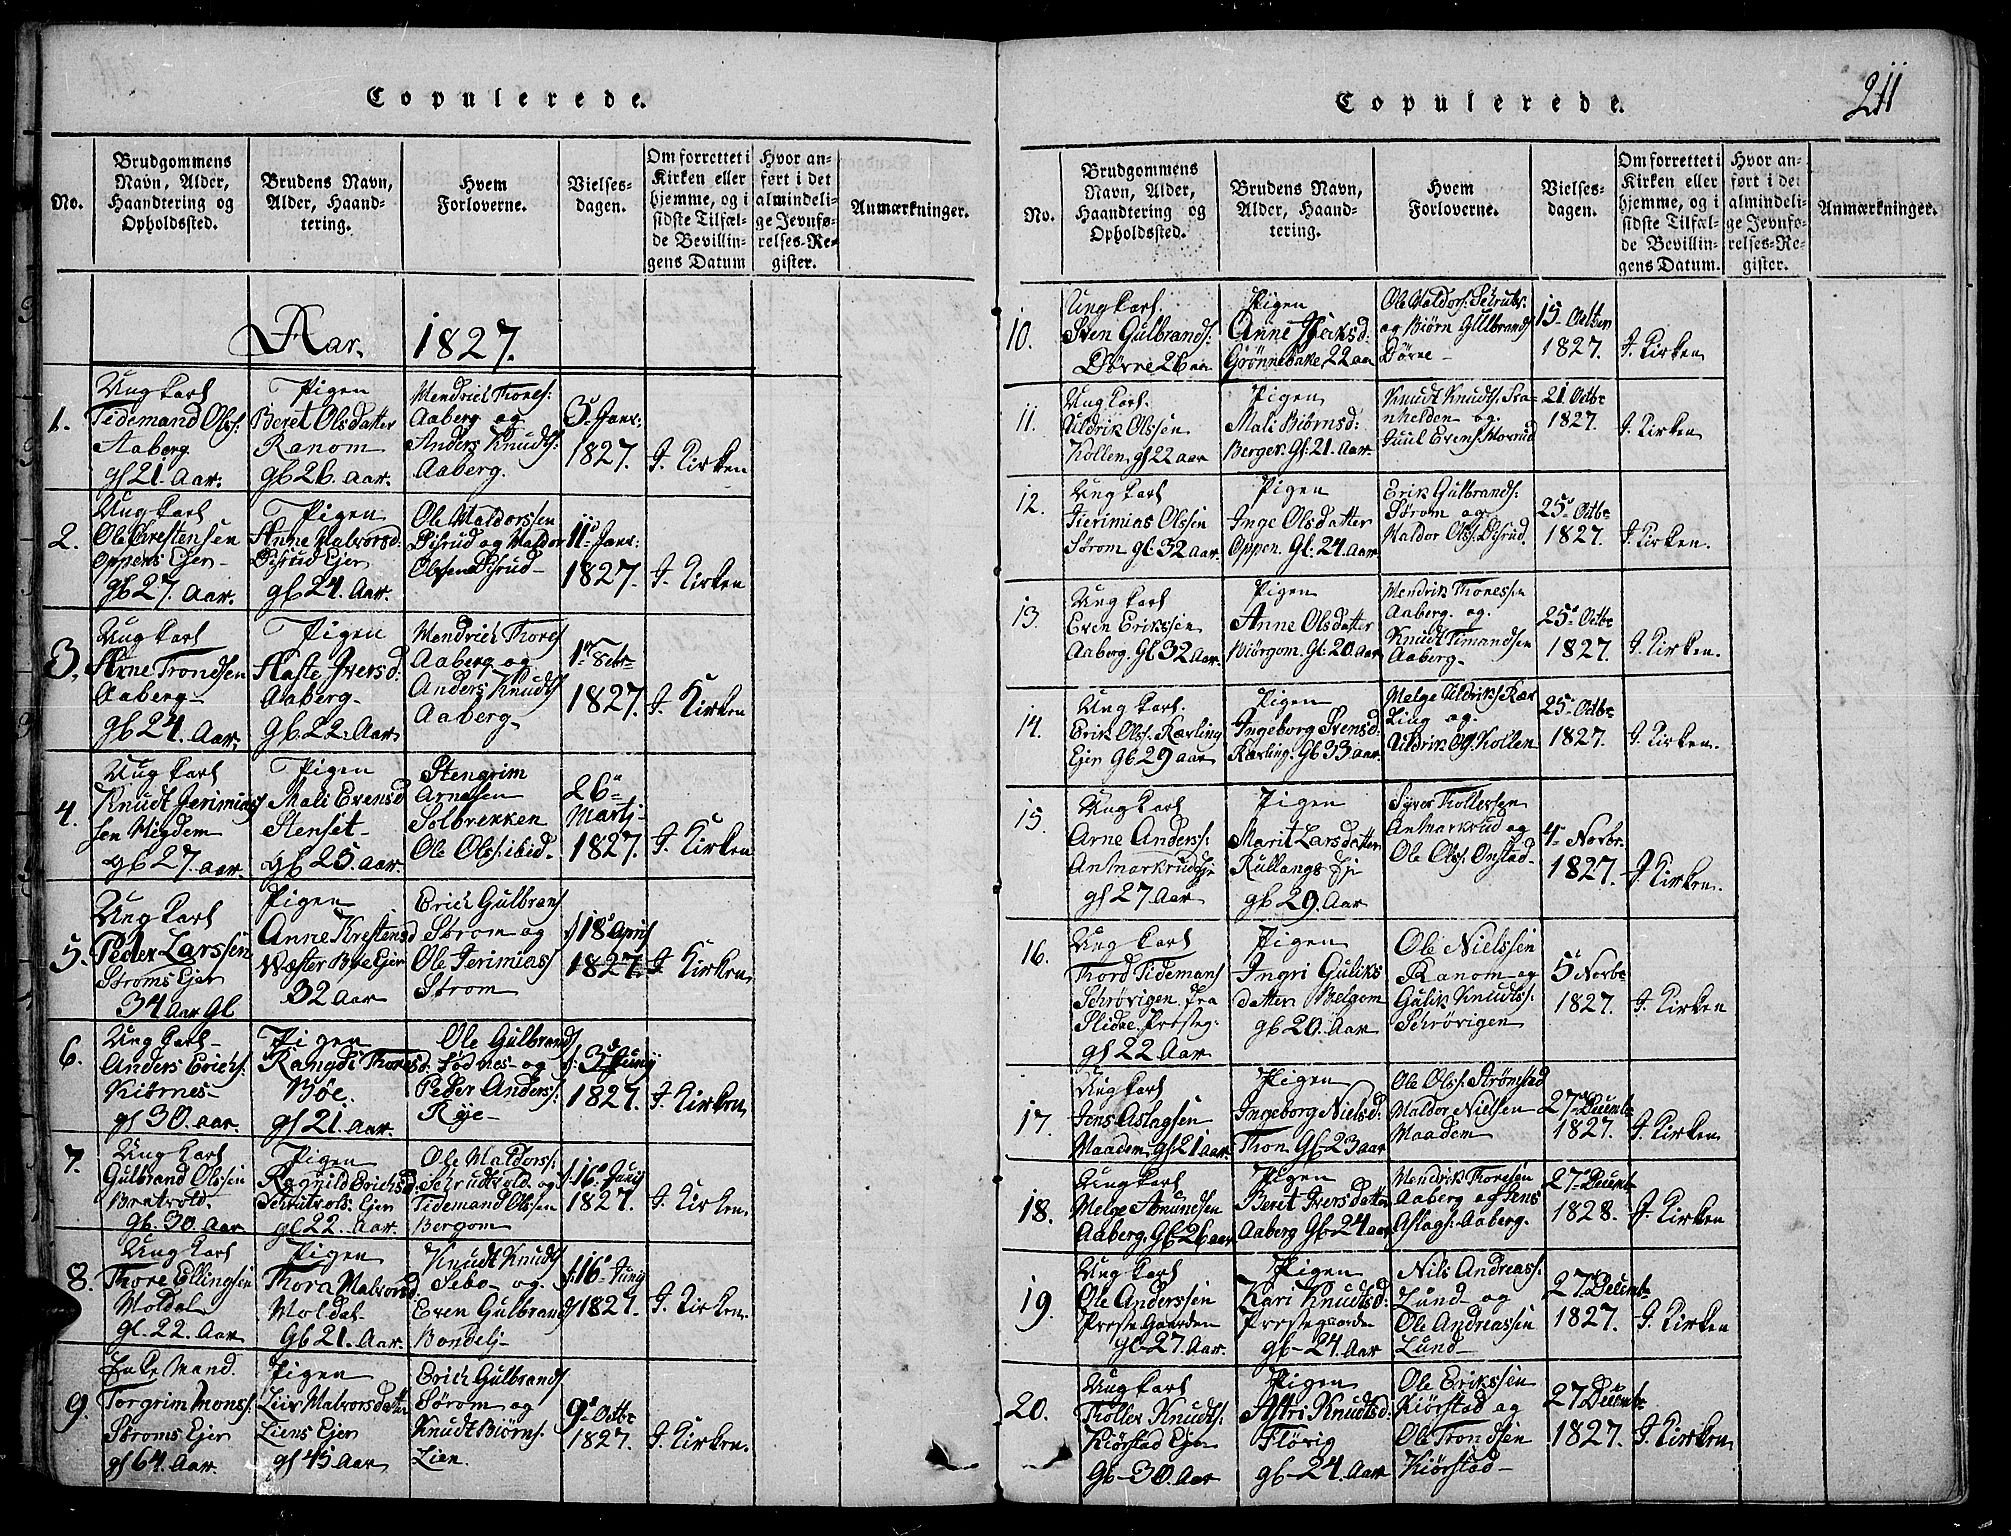 Copulerede.
No.
Brudgommens Navn, Alder, Haandtering og Opholdssted.
Brudens Navn, Alder, Haandtering.
Hvem Forloverne.
Vielsesdagen.
Om forrettet i Kirken eller hjemme, og i sidste Tilfælde Bevillingens Datum
Hvor anført i det almindelige Jevnførelses-Register.
Anmærkninger.
Aar. 1827.
1.
Ung Karl
Tidemand Olss:
Aaberg
gl 21. Aar.
Pigen
Beret Olsdatter
Ranom
gl 26. Aar.
Hendrich Thores:
Aaberg og
Anders Knudts:
Aaberg.
3. Janr:
1827.
I. Kirken
2.
Ung Karl
Ole Krestensen
Oppens Ejer
gl 27. Aar.
Pigen
Anne Halvorsd:
Disrud Ejer
gl 24. Aar.
Ole Haldorssen
Disrud og Haldor
Olssen Disrud
11. Janr:
1827.
I. Kirken
3.
Ung Karl
Arne Trondsen
Aaberg
gl 24. Aar.
Pigen
Aaste Iversd:
Aaberg
Gl. 22. Aar
Hendrich Thores
Aaberg og
Anders Knudts
Aaberg
1 Febr
1827.
I. Kirken
4.
Ung Karl
Knudt Jerimias
sen Migdem
gl 27. aar.
Pigen
Mali Evensd
Stenset
gl 25 aar.
Stengrim
Arnesen
Solbrekken
Ole Olss: ibid.
26
Martj
1827.
I. Kirken
5.
Ung Karl
Peder Larssen
Stroms Ejer
34 Aar Gl
Pigen
Anne Krestensd
Væster Bøe Ejer
32 Aar
Erich Gulbrans
Strom og
Ole Jerimias
Strom
18 April
1827.
I. Kirken
6.
Ung Karl
Anders Erichs:
Kiørnes
gl 30. aar.
Pigen
Rangdi Thoresd.
Bøe.
gl 21. Aar.
Ole Gulbrands
Sødnes og
Peder Anders:
Rye
3 Juny
1827.
I. Kirken
7.
Ung Karl
Gulbrand Olssen
Bratvold.
gl. 30. Aar
Pigen
Ragnild Erichsd:
Schrutvols. Ejer
gl 22. Aar.
Ole Haldorss:
Schrudtvold. og
Tidemand Olssen
Bergom
16 Juny
1827.
I. Kirken.
8.
Ung Karl
Thore Ellingsen
Moldal
gl. 22. Aar
Pigen
Thora Halvorsd
Moldal
Gl 21. Aar
Knudt Knudts
Sebo og
Even Gulbrands
Bondelj
16 Juny
1827.
I. Kirken.
9.
Enke Mand.
Torgrim Monss:
Stroms Ejer
gl 64. Aar.
Pigen
Liv Halvorsdatter
Liens Ejer
gl 45 Aar
Erich Gulbrands
Strom og
Knudt Biørns:
Lien.
9 Octbr
1827.
I. Kirken.
Copulerede.
211
No.
Brudgommens Navn, Alder, Haandtering og Opholdssted.
Brudens Navn, Alder, Haandtering.
Hvem Forloverne.
Vielsesdagen.
Om forrettet i Kirken eller hjemme, og i sidste Tilfælde Bevillingens Datum.
Hvor anført i det almindelige Jevnførelses-Register.
Anmærkninger.
10.
Ung Karl.
Sten Gulbrands:
Dørne 26 aar
Pigen
Anne
Grønnebake 22 aar
og Biørn Gulbrands
Dørne
15 Octbr
1827.
I. Kirken
11.
Ung Karl.
Uldrik Olssen
Kollen gl 22 aar
Pigen
Mali Biørnsd:
Berger. Gl. 21. Aar.
Knudt Knudts.
og
Juul Evens
21 Octbr
1827.
I. Kirken
12.
Ung Karl
Jerimias Olssen
Sørom gl: 32 Aar.
Pigen
Inge Olsdatter
Oppen. Gl: 24. Aar
Erik Gulbrands:
Sørom og
Haldor Olss. Disrud.
25 Octbr
1827.
I. Kirken.
13.
Ung Karl
Even Erikssen
Aaberg. Gl 32 Aar.
Pigen
Anne Olsdatter
Biørgom. Gl. 20 Aar
Hendrik Thoressen
Aaberg. og.
Knudt Timandsen
Aaberg
25 Octbr
1827.
I. Kirken.
14.
Ung Karl.
Erik Olss. Kærling
Ejer Gl 29 aar
Pigen
Ingeborg Svensd.
Kærling. Gl 33 aar.
Helge Uldriks. Kær
ling og.
Uldrik Kollen
25 Octbr
1827.
I. Kirken.
15.
Ung Karl
Arne Anderss:
Anmarkrud Eje
gl 27 Aar
Pigen
Marit Larsdatter
Rullangs Eje
gl 29. Aar
Syver Tollessen
Anmarkrud og
Ole Olss. Onstad
4 Novbr.
1827.
I. Kirken.
16.
Ung Karl
Thord Tidemans
Schrøvigen. fra
Slidre. Presteg:
gl 22 Aar.
Pigen
Ingri Guliks
datter Helgom
gl 20. Aar
Ole Nielssen
Ranom og
Gulik Knudts:
Schrøvigen
5 Novbr
1827.
I. Kirken
17.
Ung Karl
Jens Aslagsen
Maadem gl 21 Aar.
Pigen
Ingeborg Nielsd:
Thon Gl 23 aar
Ole Olss. Strømstad
Haldor Nielsen
Maadem
27 Decembr
1827.
I. Kirken.
18.
Ung Karl
Helge Amundsen
Aaberg. Gl 26 aar
Pigen
Beret Iversdatter
Aaberg Gl 24 aar
Hendrik Thoresen
Aaberg og Jens
Aslags. Aaberg.
27 Decembr
1828.
I. Kirken
19.
Ung Karl
Ole Anderssen
Preste Gaarden
gl 27 Aar.
Pigen
Kari Knudtsd:
Prestegaarden
gl 24. Aar
Nils Andreass:
Lund og
Ole Andreassen
Lund
27 Decembr
1827.
I. Kirken
20.
Ung Karl
Tollef Knudts:
Kiørstad Ejer
Gl 30. Aar
Pigen
Astri Knudtsd:
Fløvig
gl 24. Aar
Ole Erikssen
Kiørstad og
Ole Trondsen
Kiørstad
27 Decembr
1827.
I. Kirken